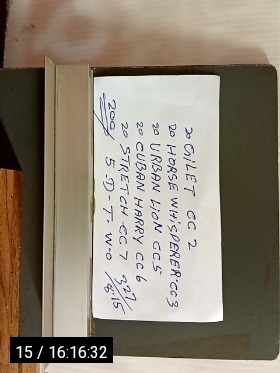 20 GILET CC 2
20 HORSE WHISPERER CC3
20 URBAN LION CC5
20 CUBAN HARRY CC6
20 STRETCH CC 7 3.27
200/ 5 D-T- W-O
15 / 16:16:32